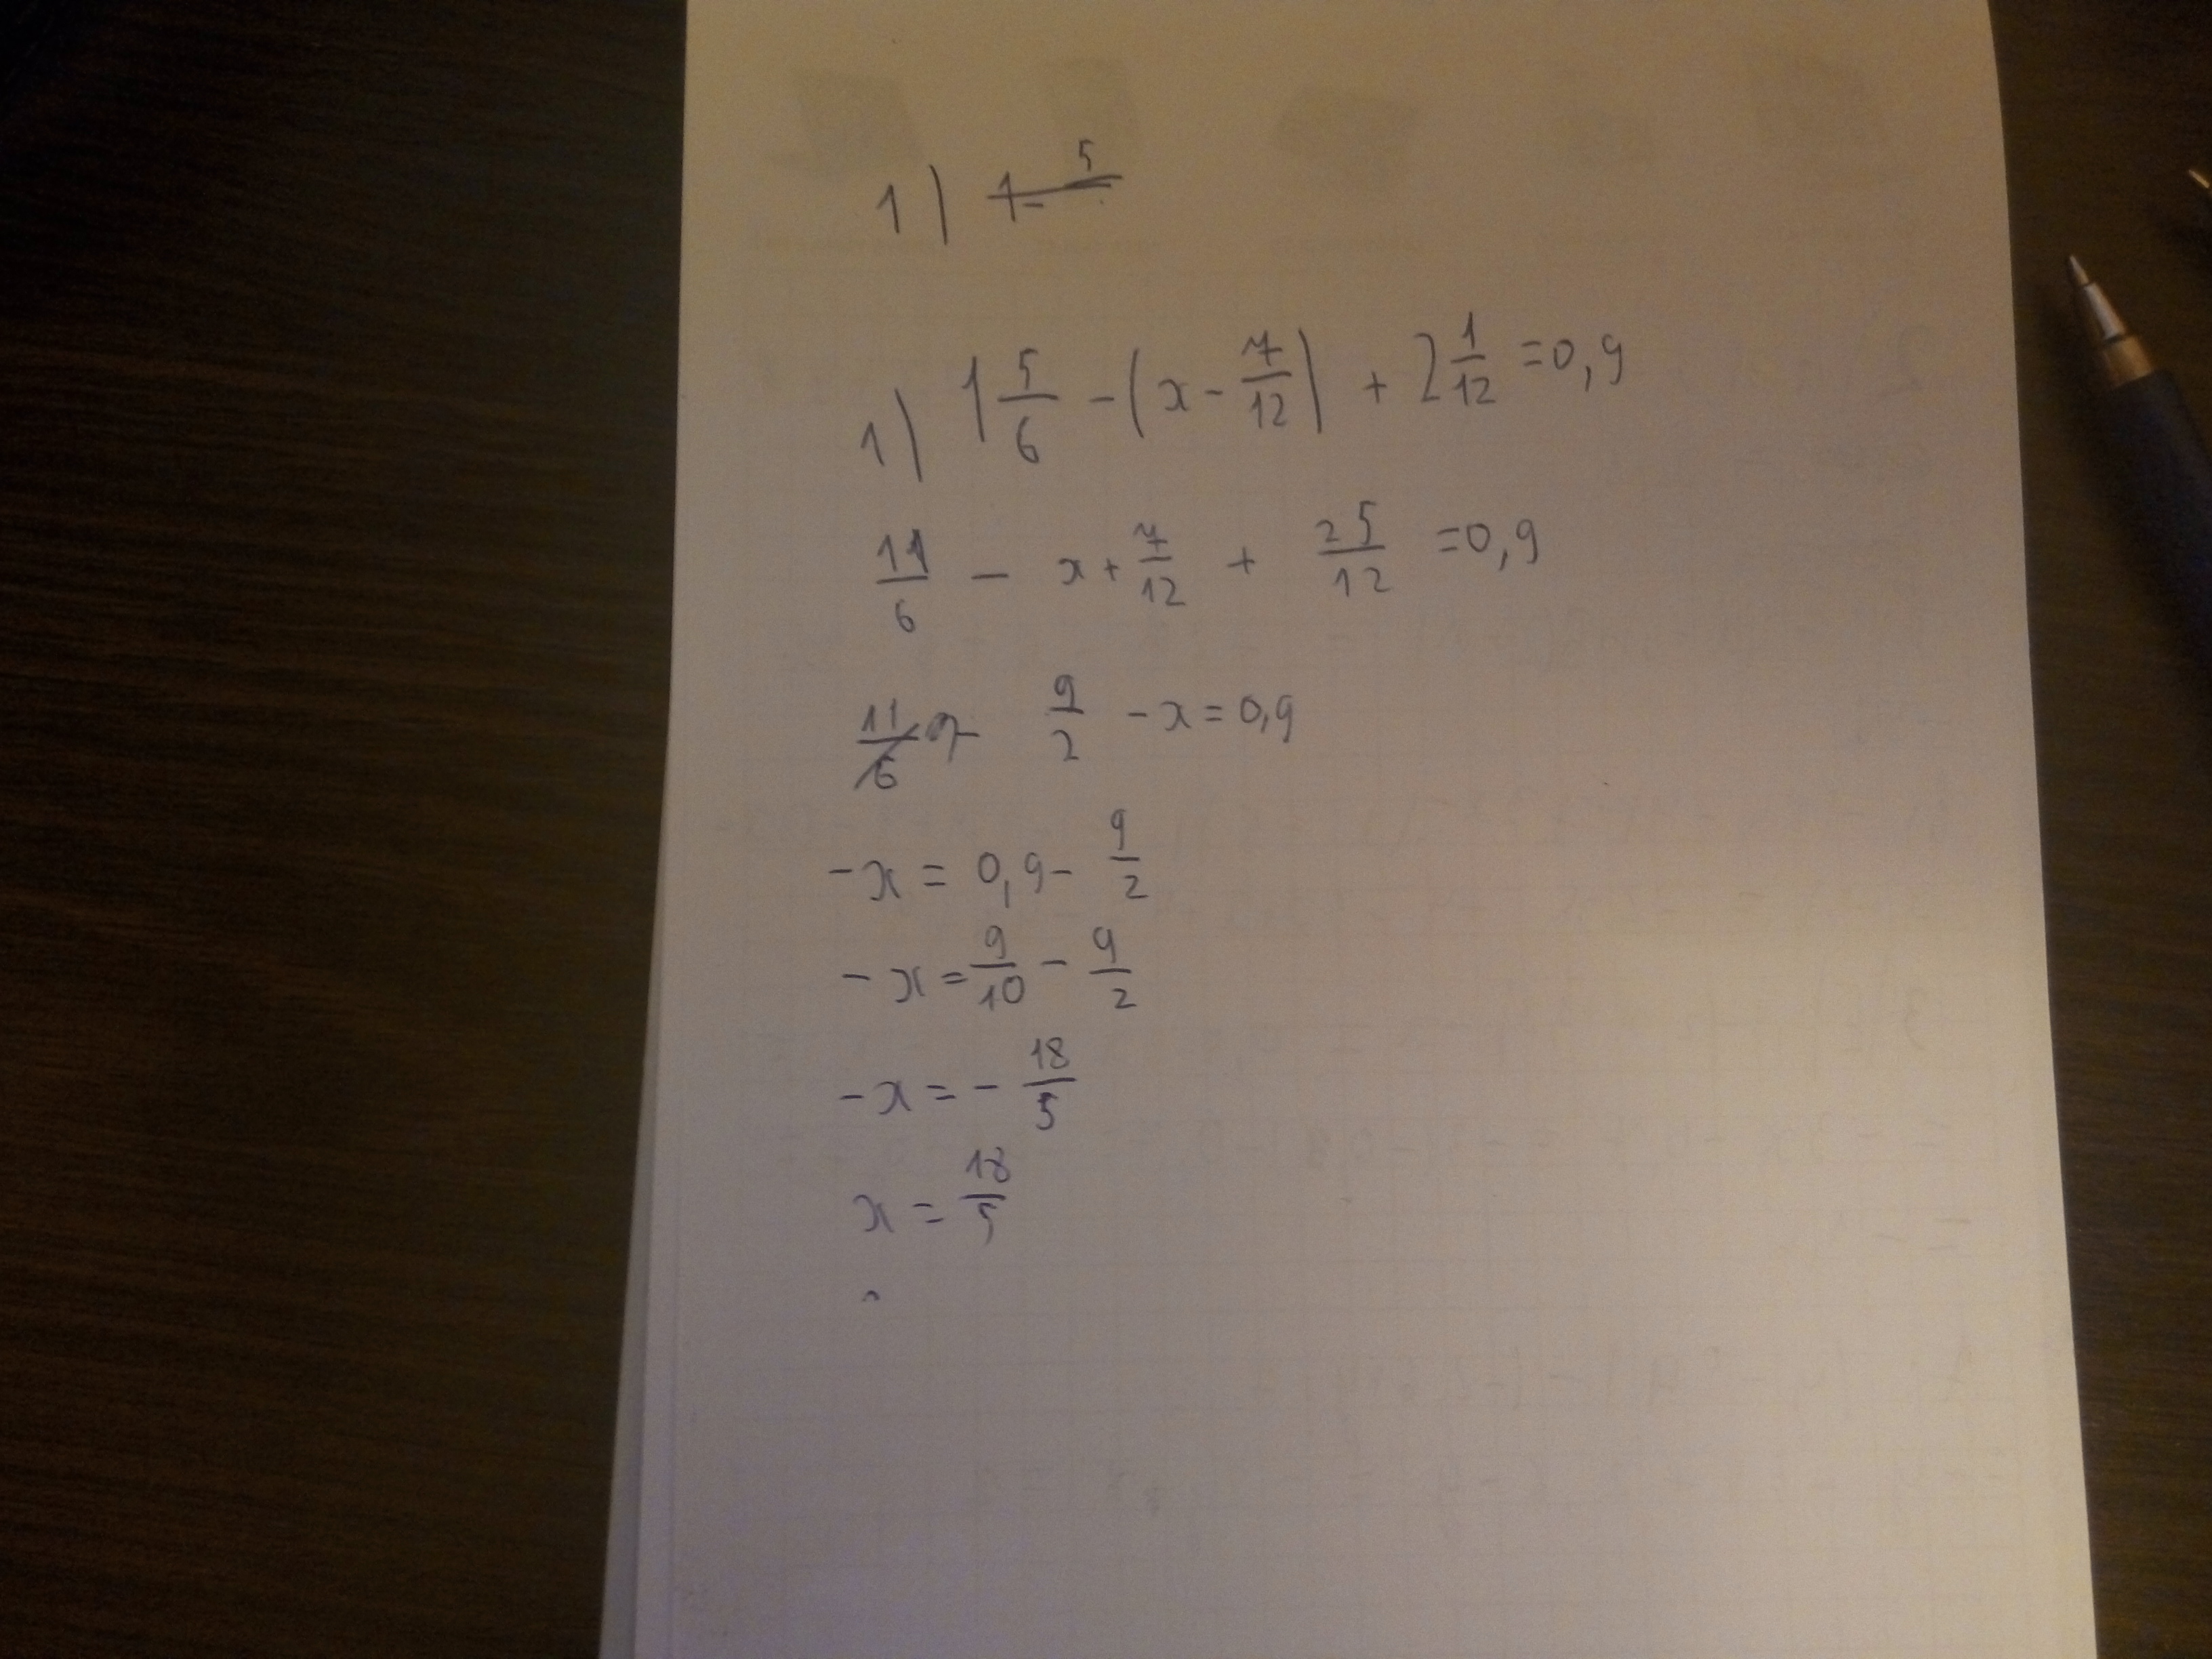 1) 1 5
1) 1 5/6 - (x - 7/12) + 2 1/12 = 0,9
11/6 - x + 7/12 + 25/12 = 0,9
11/6 9/2 - x = 0,9
-x = 0,9 - 9/2
-x = 9/10 - 9/2
-x = - 18/5
x = 18/5